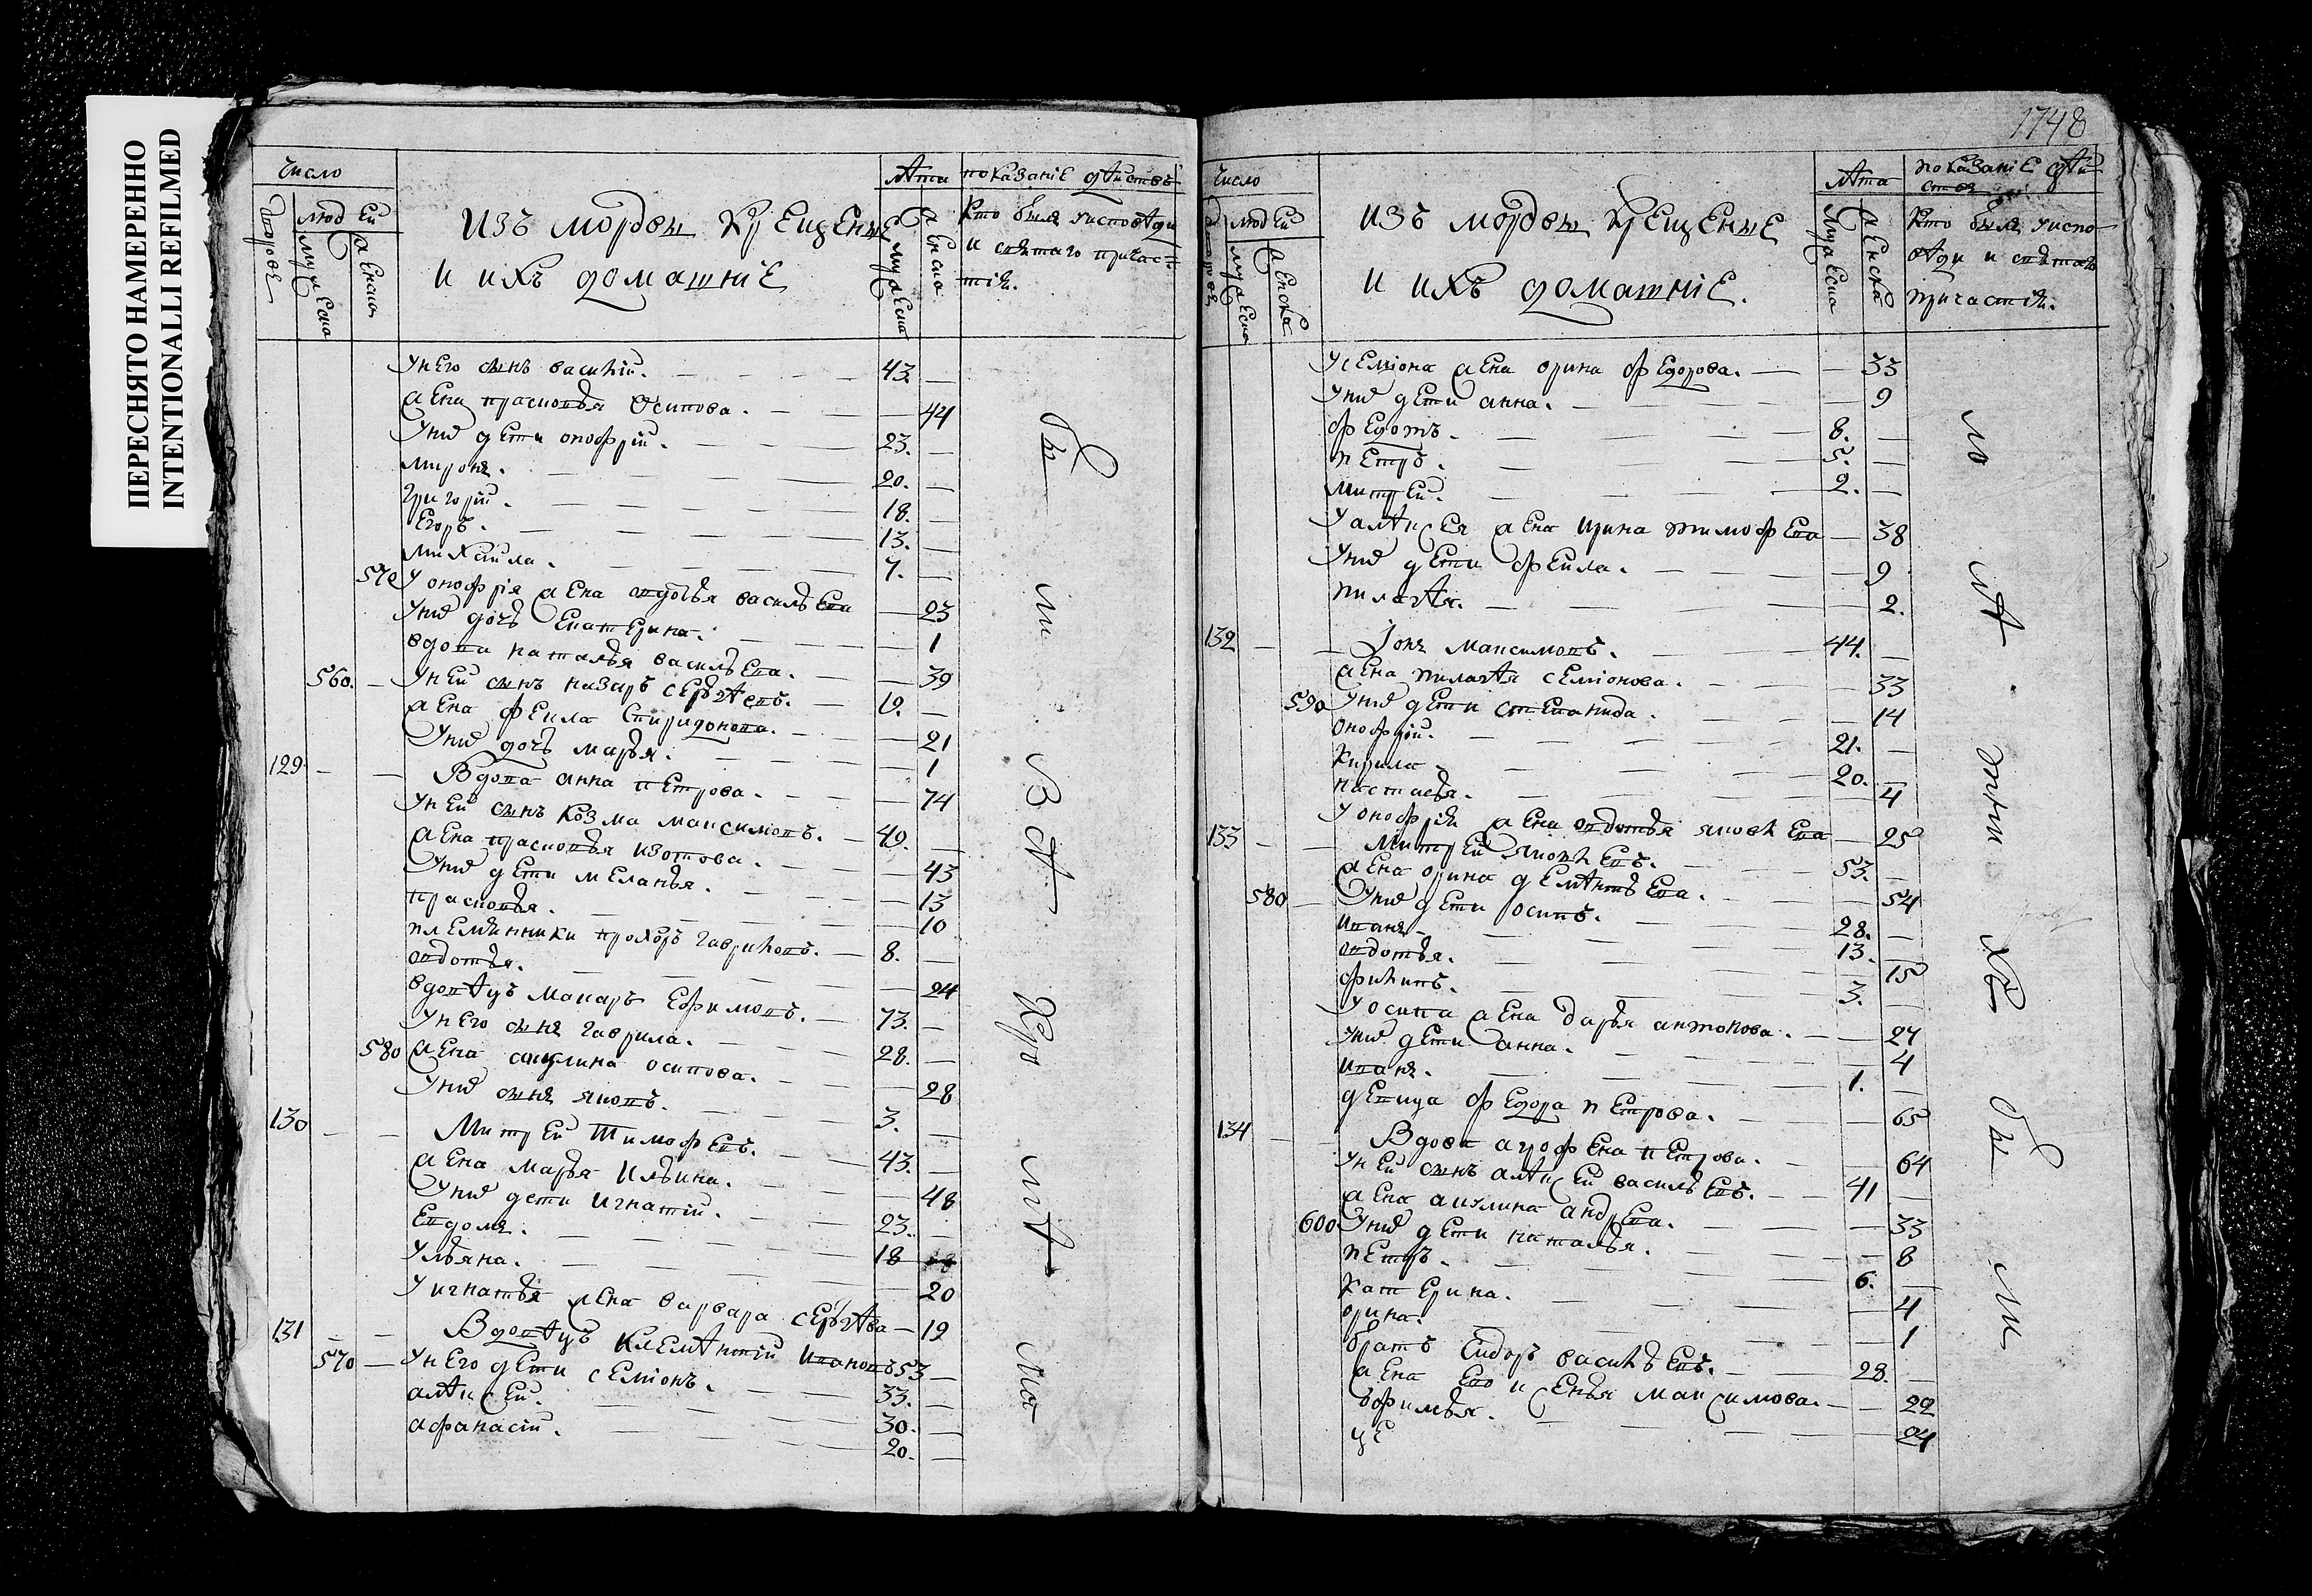 ПЕРЕСНЯТО НАМЕРЕННО
INTENTIONALLI REFILMED
Число
люд ей
дворовъ
мужеска
женска
изъ мордвы крещеные
и ихъ домашние
Лѣта
мужеска
женска
показание дѣиствъ
кто былъ уисповѣди
и святаго причас=
тия.
у него сынъ василий. 43.
жена прасковья осипова. 44
у нихъ дети онофрий. 23.
миронъ. 20.
григорий. 18.
егоръ. 13.
михаила. 7.
570 у онофрия жена овдотья васильева 23
у нихъ дочь екатерина. 1
вдова наталья васильева. 39
560. у ней сынъ назаръ сергѣевъ. 19.
жена фекла спиридонова. 21
у нихъ дочь марья. 1
129 Вдова анна петрова. 74
у ней сынъ козма максимовъ. 49.
жена прасковья изотова. 43
у нихъ дети меланья. 13
прасковья. 10
племянники прохоръ гавриловъ. 8.
овдотья. 24
вдовѣцъ макаръ ефимовъ. 73.
у него сынъ гаврила. 28.
580 жена акулина осипова. 28
у нихъ сынъ яковъ. 3.
130 Митрей тимофеевъ. 43.
жена марья ильина. 48
у нихъ дети игнатий. 23.
евдомъ. 18
ульяна. 20
у игнатья жена варвара сергѣва 19
131 Вдовѣцъ клемѣнтий ивановъ 53
570 у него дети семионъ. 33.
алѣксей. 30.
афанасий. 20.
1748
Число
люд ей
мужеска
женска
изъ мордвы крещеные
и ихъ домашние.
Лѣта
мужеска
женска
показание дѣи
ствъ
кто былъ уиспо
вѣди и святаго
причастия.
у семиона жена орина федорова. 33
у нихъ дети анна. 9
федотъ. 8.
петръ. 5.
митрей. 2.
у алѣксея жена ирина тимофева 38
у нихъ дети фекла. 9
пилагѣя. 2.
132 Ионъ максимовъ. 44.
жена пилагѣя семионова. 33
590 у нихъ дети степанида. 14
онофрий. 21.
кирила 20.
настасья. 4
у онофрия жена овдотья яковлева 25
133 Митрей яковлевъ. 53.
жена орина демѣнтьева. 54
580 у нихъ дети осипъ. 28.
иванъ 13.
овдотья. 15
филипъ. 3.
у осипа жена дарья антонова. 27
у нихъ дети анна. 4
иванъ. 1.
девица федора петрова. 65
134 Вдова агрофена петрова. 64
у ней сынъ алѣксей васильевъ. 41
жена акулина андрева. 33
600 у нихъ дети наталья. 8
петръ. 6.
катерина. 4
орина. 1
братъ сидоръ васильевъ. 28.
жена ево ксенья максимова. 22
офимья. 24